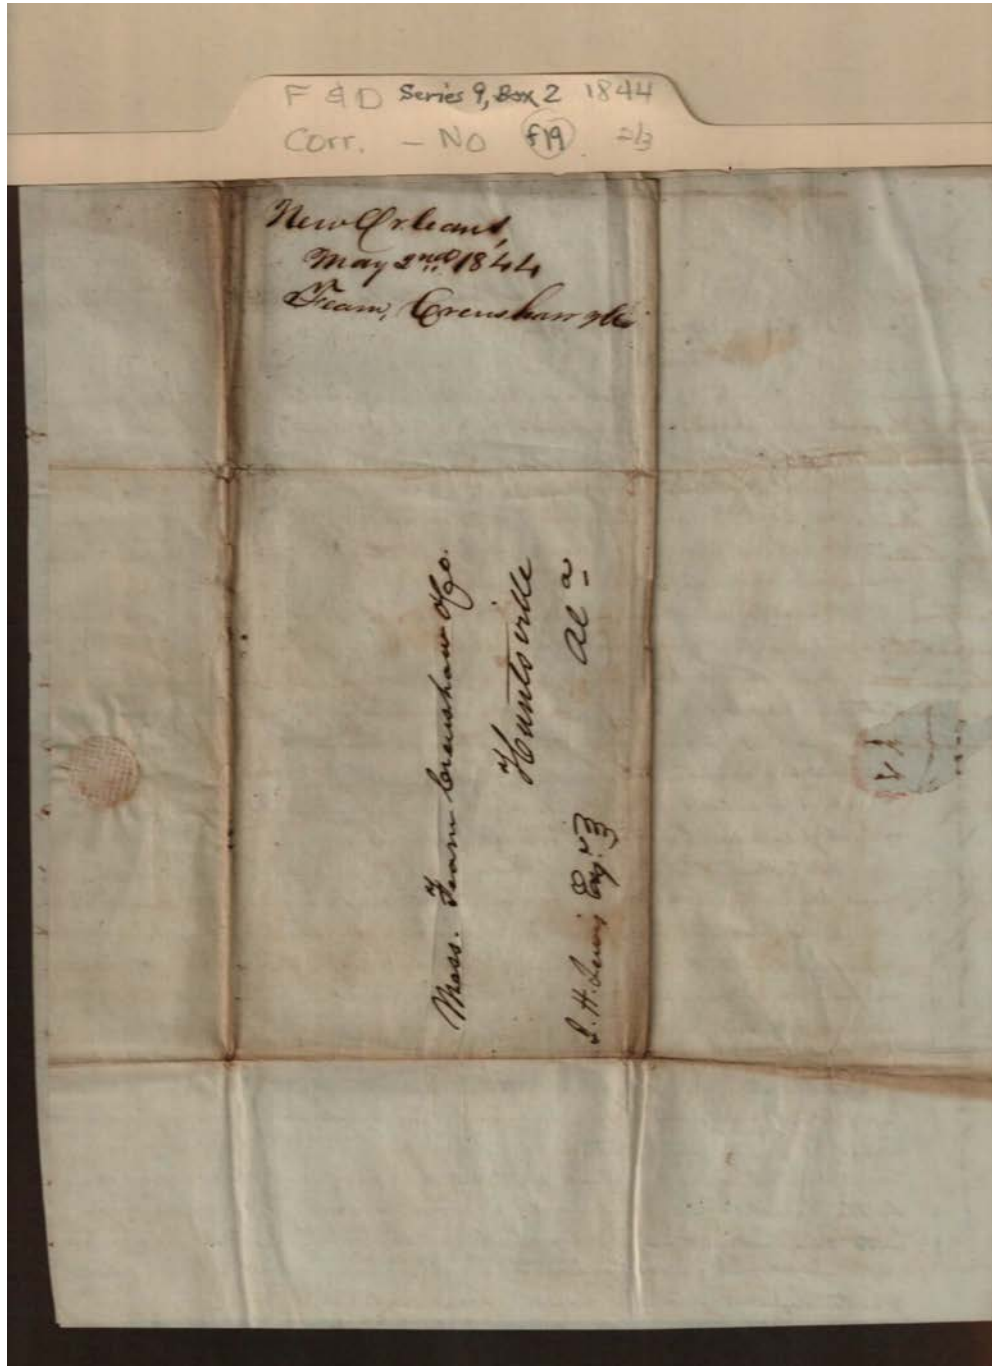 F & D Series 9, Box 2 1844
Corr. - No f19 2/3
New Orleans,
May 2nd 1844
Fearn, Crenshaw & Co
Mess. Fearn Crenshaw & Co.
Huntsville
Ala
S. H. Lewis Esq.